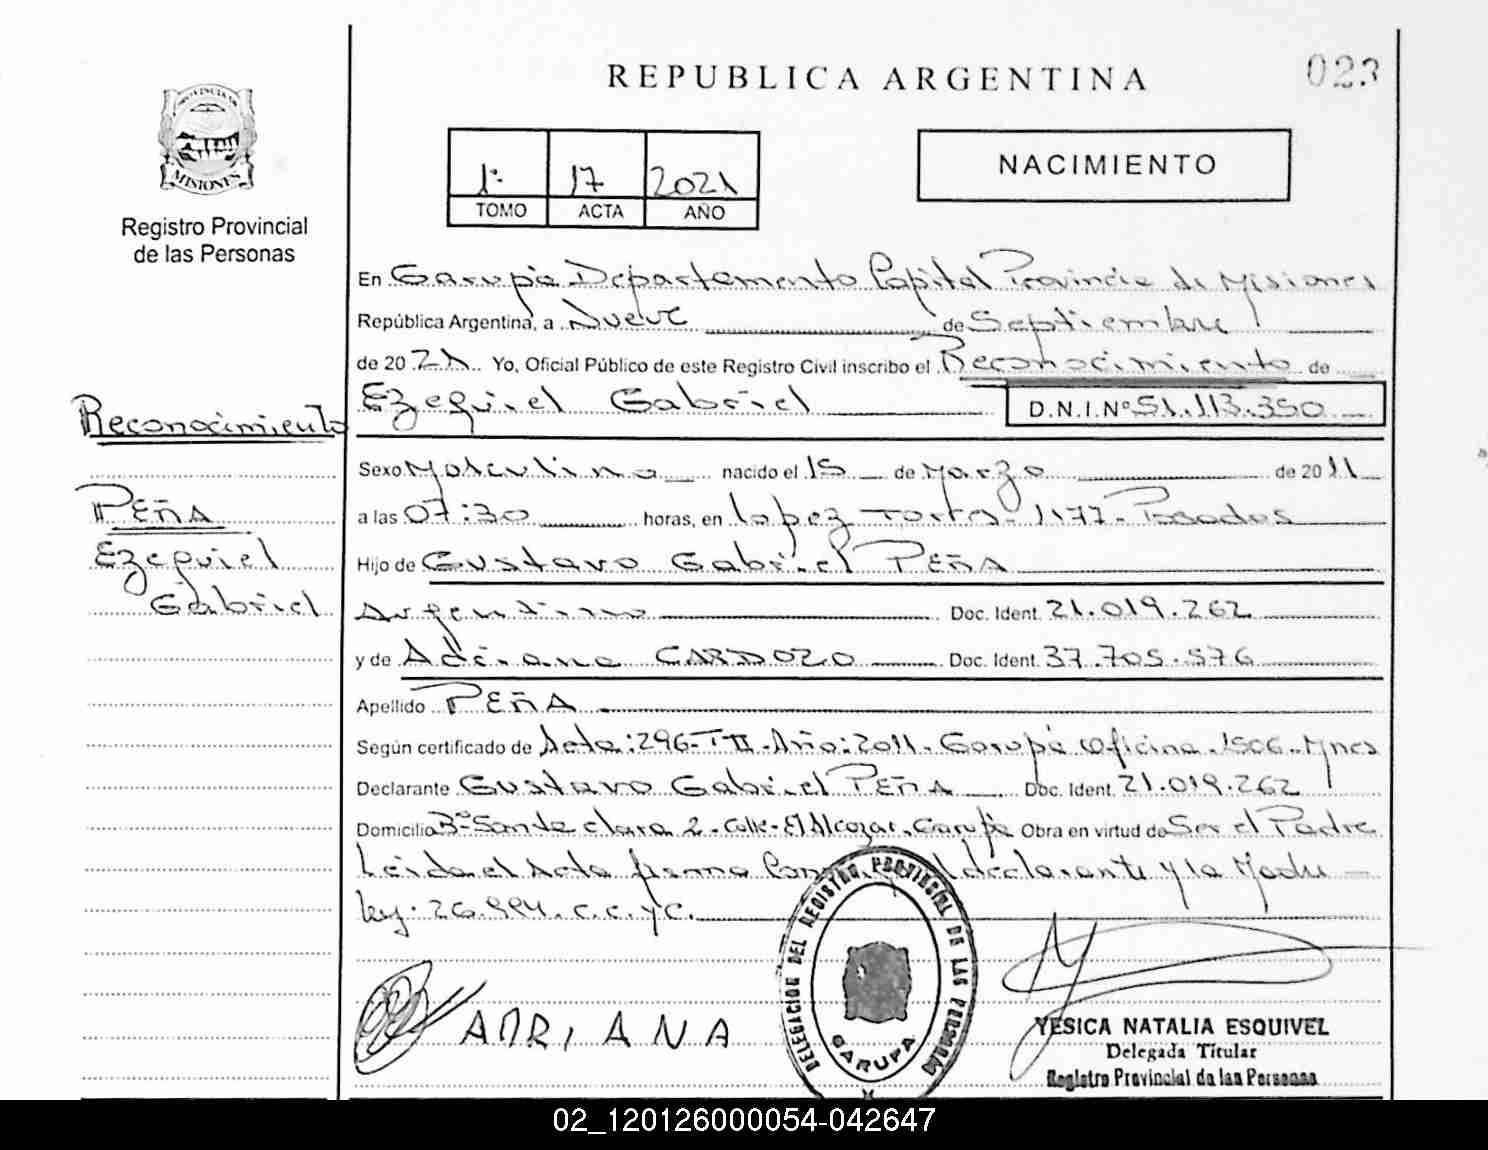 REPUBLICA ARGENTINA
023
PROVINCIA DE
MISIONES
Registro Provincial
de las Personas
1º 17 2021
TOMO ACTA AÑO
NACIMIENTO
En Garupá Departamento Capital Provincia de Misiones
República Argentina, a Nueve de Septiembre
de 2021 Yo, Oficial Público de este Registro Civil inscribo el Reconocimiento de
Ezequiel Gabriel D.N.I.Nº 51.113.350
Reconocimiento
PEÑA
Ezequiel
Gabriel
Sexo Masculino nacido el 15 de Marzo de 2011
a las 07:30 horas, en Lopez Torres 1177- Posadas
Hijo de Gustavo Gabriel PEÑA
Argentino Doc. Ident. 21.019.262
y de Adriana CARDOZO Doc. Ident. 37.705.576
Apellido PEÑA
Según certificado de Acta: 296-T II-Año: 2011. Garupá Oficina. 1506-Mnes
Declarante Gustavo Gabriel PEÑA Doc. Ident. 21.019.262
Domicilio Bº Santa Clara 2-Calle-El Alcazar. Garupá Obra en virtud de Ser el Padre
Leida el Acta firma declarante y la Madre
Ley. 26.994. C.C.yC.
ADRIANA
DELEGACION DEL REGISTRO PROVINCIAL DE LAS PERSONAS
GARUPA
YESICA NATALIA ESQUIVEL
Delegada Titular
Registro Provincial de las Personas
02_120126000054-042647